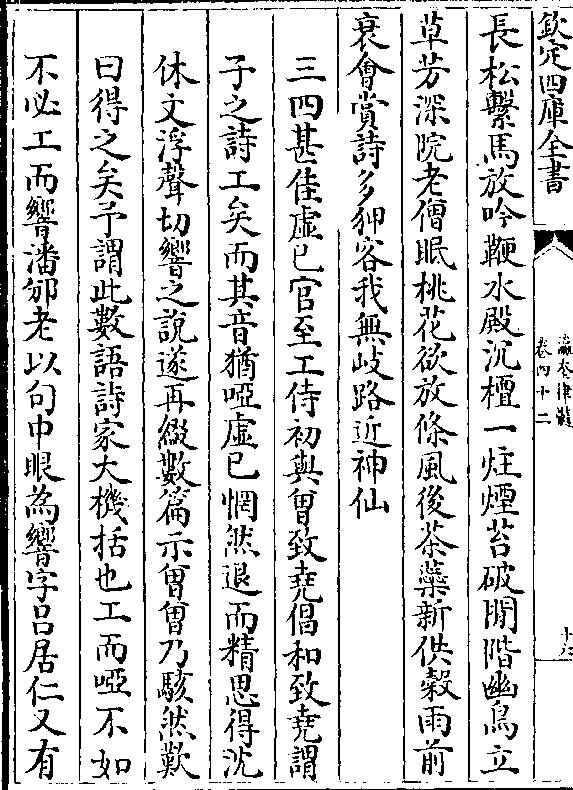 欽定四庫全書
瀛奎律髓
卷四十二
長松繫馬放吟鞭水殿沉檀一炷煙苔破閒階幽鳥立
草芳深院老僧眠桃花欲放條風後茶蘃新供穀雨前
衰會賞詩多狎客我無岐路近神仙
三四甚佳虛已官至工侍初與曾致堯倡和致堯謂
子之詩工矣而其音猶啞虛已惘然退而精思得沈
休文浮聲切響之說遂再綴數篇示曾曾乃駭然歎
曰得之矣予謂此數語詩家大機括也工而啞不如
不必工而響潘邠老以句中眼為響字呂居仁又有